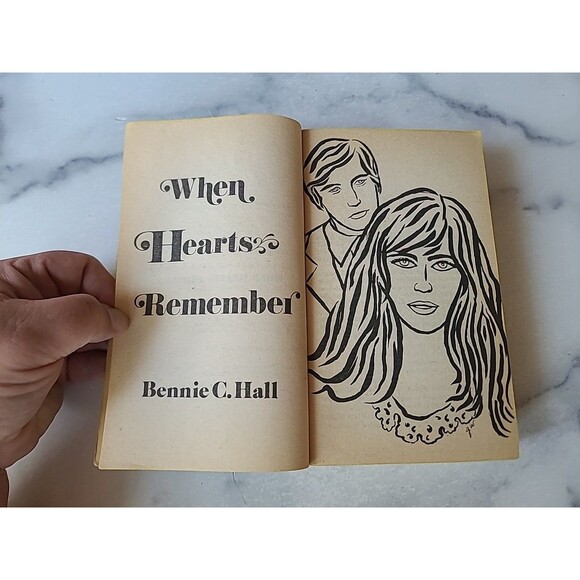 When
Hearts
Remember
Bennie C. Hall